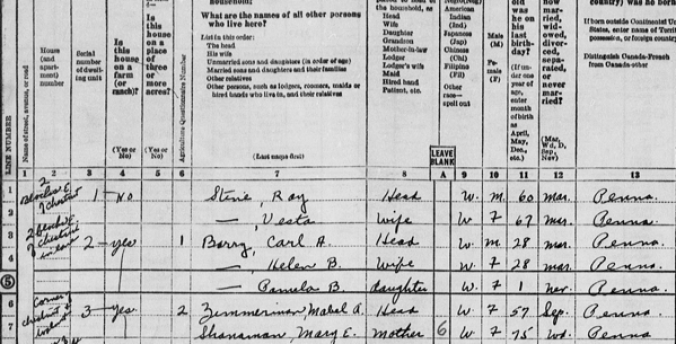 household?
What are the names of all other persons who live here?
List in this order:
The head
His wife
Unmarried sons and daughters (in order of age)
Married sons and daughters and their families
Other relatives
Other persons, such as lodgers, roomers, maids or hired hands who live in, and their relatives
(Last name first)
LINE NUMBER
Name of street, avenue, or road
House (and apartment) number
Serial number of dwelling unit
Is this house on a farm (or ranch)?
(Yes or No)
Is this house on a place of three or more acres?
(Yes or No)
Agriculture Questionnaire Number
the household, as
Head
Wife
Daughter
Grandson
Mother-in-law
Lodger
Lodger's wife
Maid
Hired hand
Patient, etc.
LEAVE BLANK
American Indian (Ind)
Japanese (Jap)
Chinese (Chi)
Filipino (Fil)
Other race—spell out
Male (M)
Female (F)
old was he on his last birthday?
(If under one year of age, enter month of birth as April, May, Dec., etc.)
now married, widowed, divorced, separated, or never married?
(Mar, Wd, D, Sep, Nev)
country) was he born
If born outside Continental
States, enter name of
possession, or foreign
Distinguish Canada-French from Canada-other
1 2 3 4 5 6 7 8 A 9 10 11 12 13
1 1 – No Ray Head W. M. 60 mar. Penna.
2 — , Vesta Wife W 7 67 mar. Penna.
3 2 – yes 1 Barry, Carl A. Head W. M. 28 mar. Penna.
4 — Helen B. Wife W. 7 28 mar. Penna.
5 — Pamela B. daughter W. 7 1 nev. Penna.
6 Corner of chestnut 3 – yes 2 Zimmerman, Mabel A. Head W 7 57 Sep. Penna.
7 Shanaman, Mary E. Mother 6 W 7 75 Wd. Penna